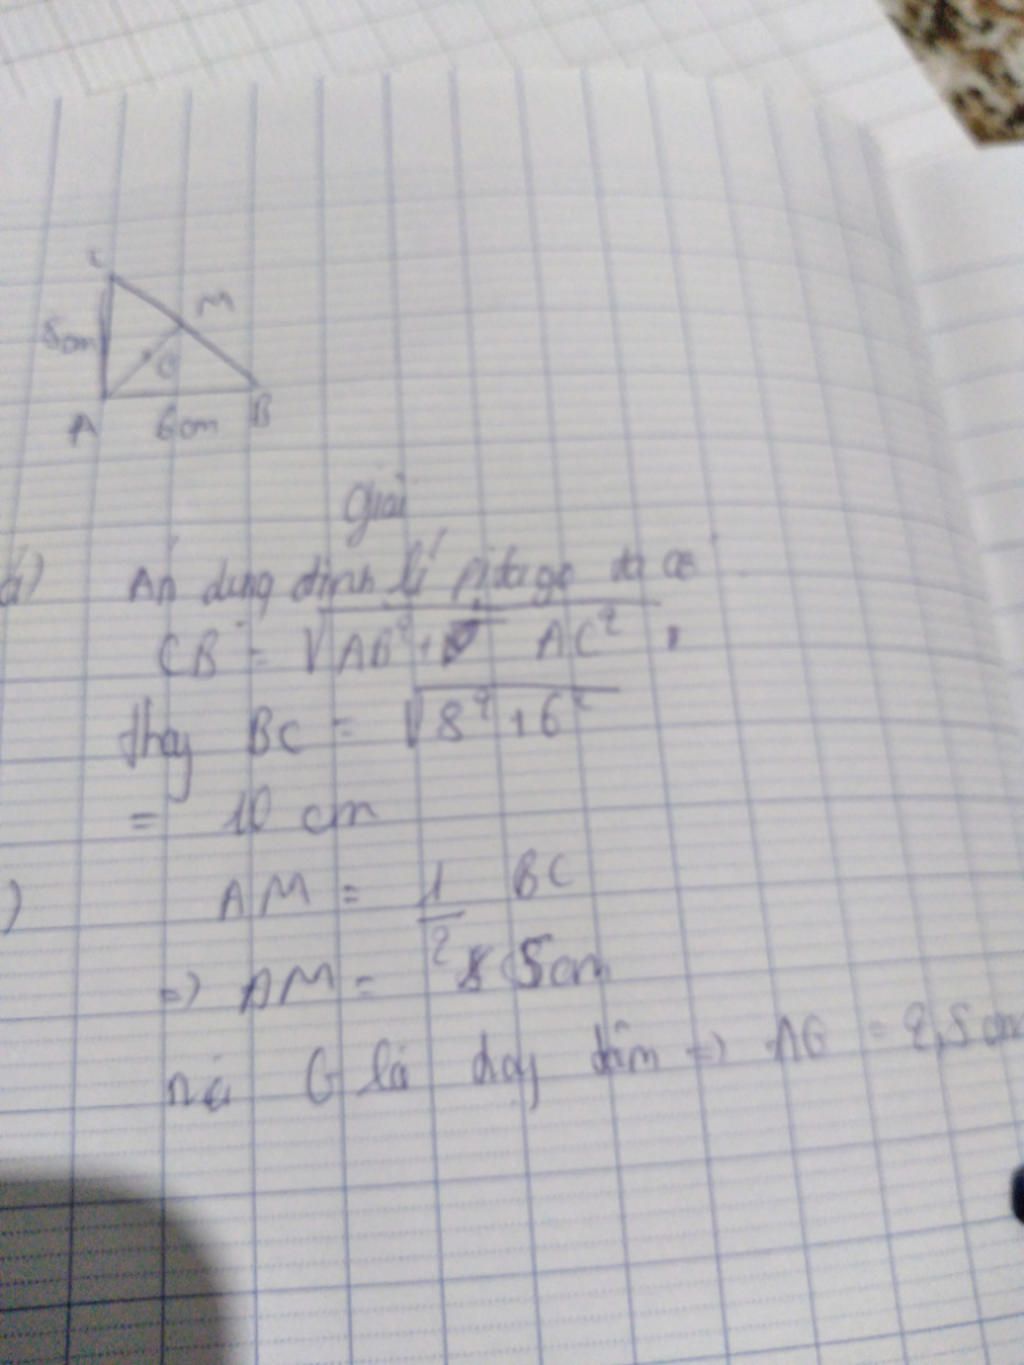 C
M
5cm
G
A 6cm B
Giải
a) Áp dụng định lí pitago ta có
CB = √AB² + AC²
thay BC = √8² + 6²
= 10 cm
) AM = 1/2 BC
=> AM = 5cm
G là tâm => AG = 2,5 cm